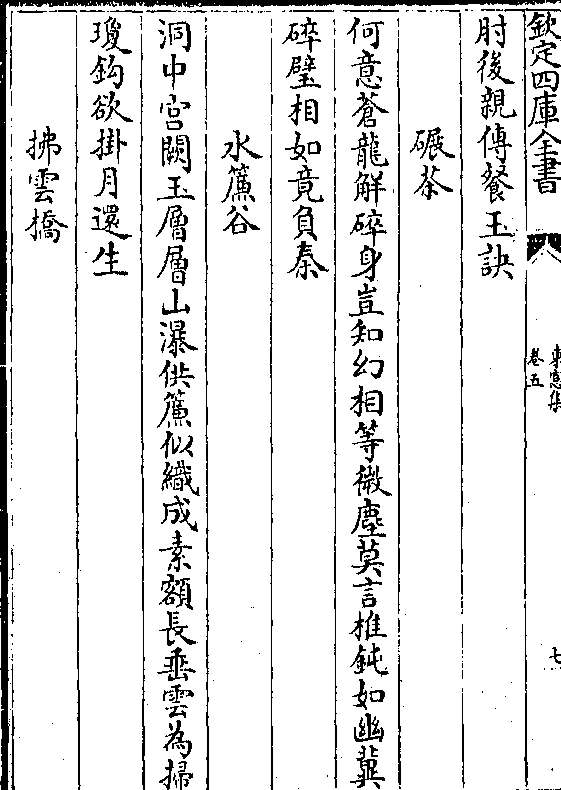 欽定四庫全書
東窻集
卷五
七
肘後親傳餐玉訣
碾茶
何意蒼龍解碎身豈知幻相等微塵莫言椎鈍如幽冀
碎璧相如竟負秦
水簾谷
洞中宫闕玉層層山瀑供簾似織成素額長垂雲為掃
瓊鈎欲掛月還生
拂雲橋